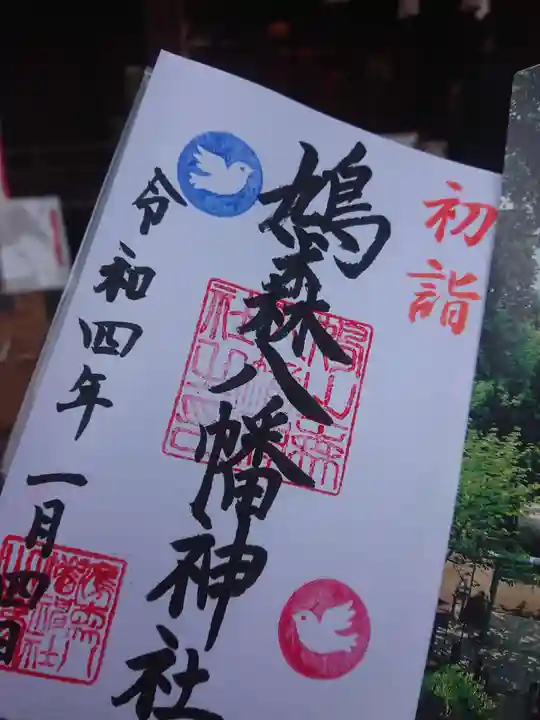 初詣
鳩森八幡神社
令和四年 一月四日